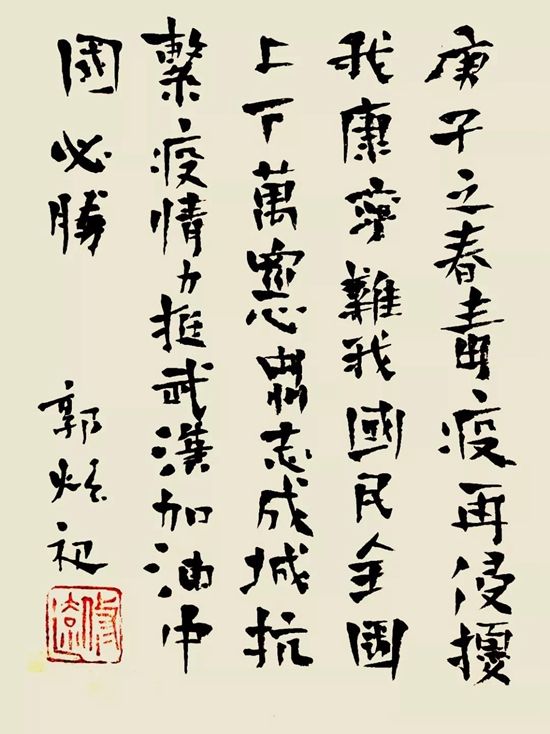 庚子之春毒疫再侵擾
我康寧難我國民全國
上下萬志成城抗
繫疫情力挺武漢加油中
國必勝
郭